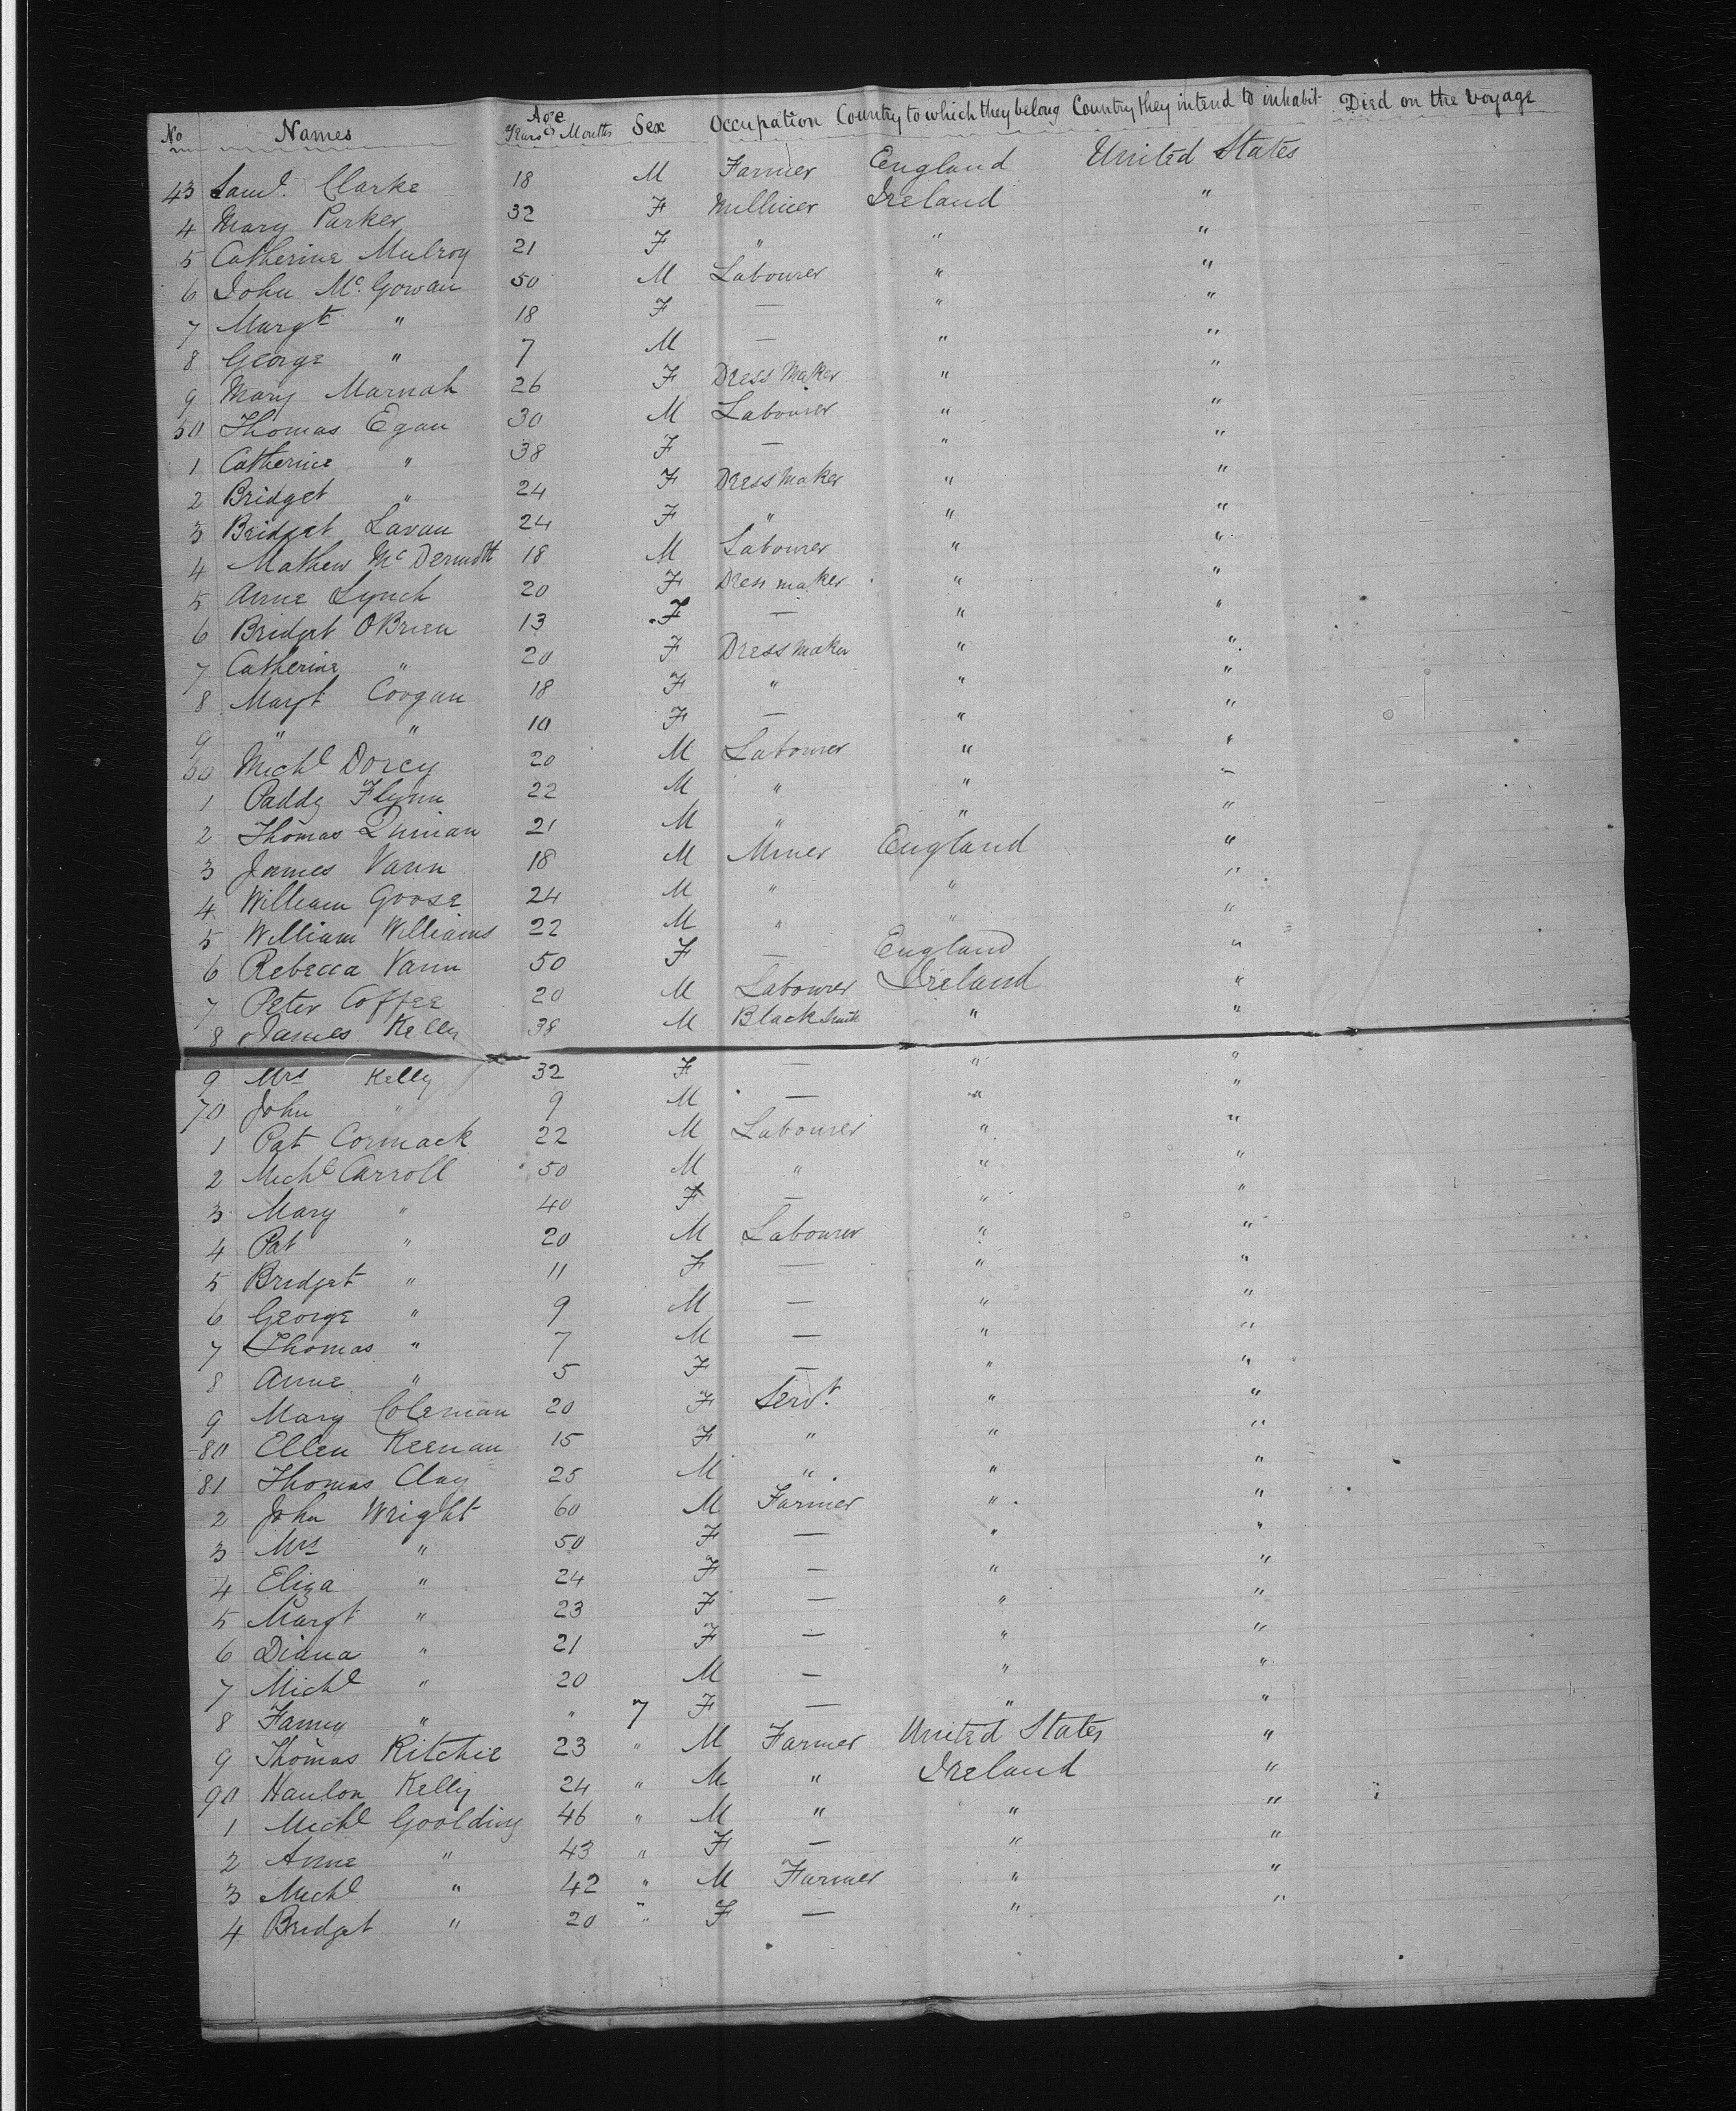 No Names Age Years Months Sex Occupation Country to which they belong Country they intend to inhabit Died on the Voyage
43 Saml. Clarke 18 M Farmer England United States
4 Mary Parker 32 F Milliner Ireland "
5 Catherine Mulroy 21 F " " "
6 John Mc. Gowan 50 M Labourer " "
7 Margt " 18 F — " "
8 George " 7 M — " "
9 Mary Marnah 26 F Dress Maker " "
50 Thomas Egan 30 M Labourer " "
1 Catherine " 38 F — " "
2 Bridget " 24 F Dress Maker " "
3 Bridget Lavan 24 F " " "
4 Mathew Mc Dermott 18 M Labourer " "
5 Anne Lynch 20 F Dress maker " "
6 Bridget OBrien 13 F — " "
7 Catherine " 20 F Dress Maker " "
8 Margt Coogan 18 F " " "
9 " " 10 F — " "
60 Michl Dorcy 20 M Labourer " "
1 Paddy Flynn 22 M " " "
2 Thomas 21 M " " "
3 James Vann 18 M Miner England "
4 William Goose 24 M " " "
5 William Williams 22 M " " "
6 Rebecca Vann 50 F — England "
7 Peter Coffee 20 M Labourer Ireland "
8 James Kelly 38 M Black Smith " "
9 Mrs Kelly 32 F — " "
70 John " 9 M — " "
1 Pat Cormack 22 M Labourer " "
2 Michl Carroll 50 M " " "
3 Mary " 40 F — " "
4 Pat " 20 M Labourer " "
5 Bridget " 11 F — " "
6 George " 9 M — " "
7 Thomas " 7 M — " "
8 Anne " 5 F — " "
9 Mary Coleman 20 F Servt. " "
80 Ellen Keenan 15 F " " "
81 Thomas Clay 25 M " " "
2 John Wright 60 M Farmer " "
3 Mrs " 50 F — " "
4 Eliza " 24 F — " "
5 Margt " 23 F — " "
6 Diana " 21 F — " "
7 Michl " 20 M — " "
8 Fanny " " 7 F — " "
9 Thomas Ritchie 23 " M Farmer United States "
90 Hanlon Kelly 24 " M " Ireland "
1 Michl Goolding 46 " M " " "
2 Anne " 43 " F — " "
3 Michl " 42 " M Farmer " "
4 Bridget " 20 " F — " "